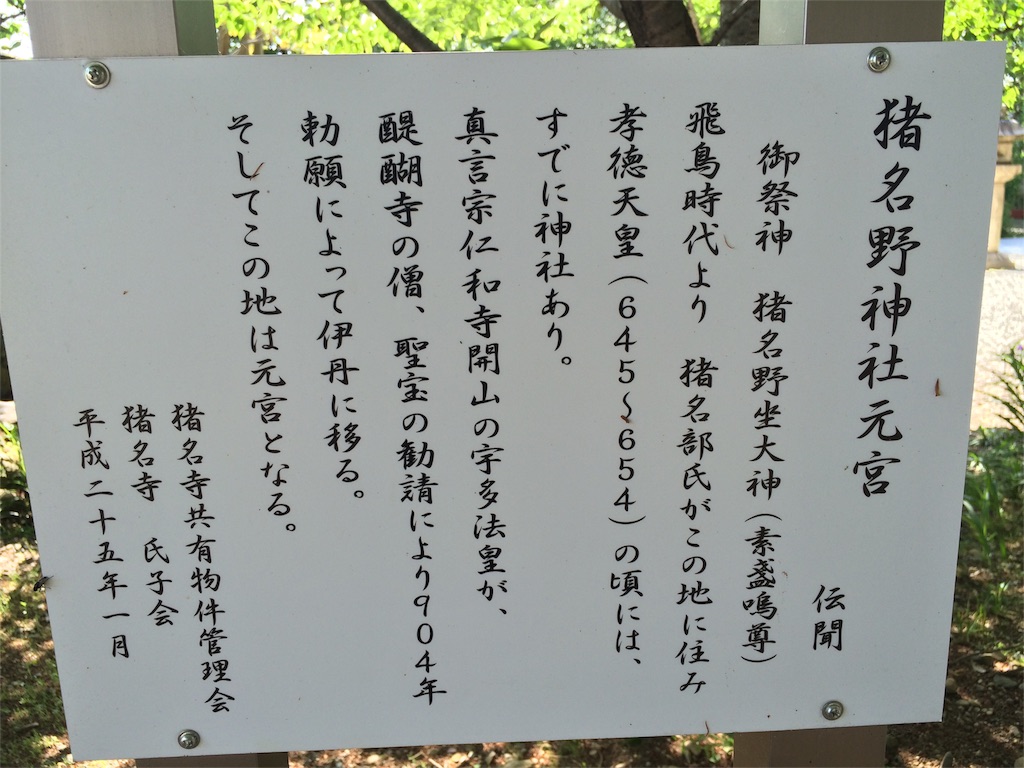 猪名野神社元宮
伝聞
御祭神　猪名野坐大神（素盞嗚尊）
飛鳥時代より　猪名部氏がこの地に住み
孝徳天皇（645～654）の頃には、
すでに神社あり。
真言宗仁和寺開山の宇多法皇が、
醍醐寺の僧、聖宝の勧請により904年
勅願によって伊丹に移る。
そしてこの地は元宮となる。
猪名寺共有物件管理会
猪名寺　氏子会
平成二十五年一月